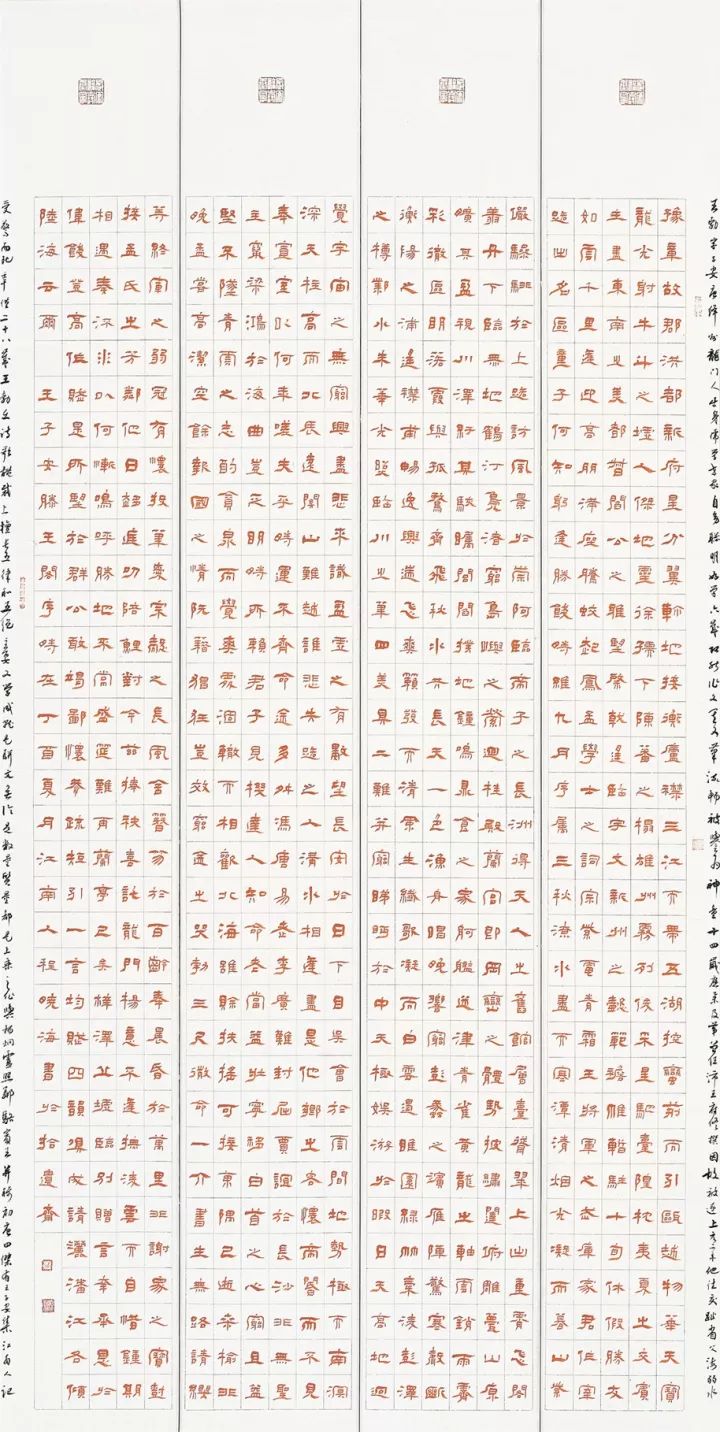 豫章故郡洪都新府星分翼軫地接衡廬襟三江而帶五湖控蠻荊而引甌越物華天寶
龍光射牛斗之墟人傑地靈徐孺下陳蕃之榻雄州霧列俊采星馳臺隍枕夷夏之交賓
主盡東南之美都督閻公之雅望棨戟遙臨宇文新州之懿範襜帷暫駐十旬休假勝友
如雲千里逢迎高朋滿座騰蛟起鳳孟學士之詞宗紫電青霜王將軍之武庫家君作宰
路出名區童子何知躬逢勝餞時維九月序屬三秋潦水盡而寒潭清煙光凝而暮山紫
儼驂騑於上路訪風景於崇阿臨帝子之長洲得天人之舊館層臺聳翠上出重霄飛閣
翔丹下臨無地鶴汀鳧渚窮島嶼之縈迴桂殿蘭宮即岡巒之體勢披繡闥俯雕甍山原
曠其盈視川澤紆其駭矚閭閻撲地鐘鳴鼎食之家舸艦迷津青雀黃龍之軸雲銷雨霽
彩徹區明落霞與孤鶩齊飛秋水共長天一色漁舟唱晚響窮彭蠡之濱雁陣驚寒聲斷
衡陽之浦遙襟甫暢逸興遄飛爽籟發而清風生纖歌凝而白雲遏睢園綠竹氣凌彭澤
之樽鄴水朱華光照臨川之筆四美具二難并窮睇眄於中天極娛游於暇日天高地迥
覺宇宙之無窮興盡悲來識盈虛之有數望長安於日下目吳會於雲間地勢極而南溟
深天柱高而北辰遠關山難越誰悲失路之人溝水相逢盡是他鄉之客懷帝閽而不見
奉宣室以何年嗟夫乎時運不齊命途多舛馮唐易老李廣難封屈賈誼於長沙非無聖
主竄梁鴻於海曲豈乏明時所賴君子見機達人知命老當益壯寧移白首之心窮且益
堅不墜青雲之志酌貪泉而覺爽處涸轍而相歡北海雖賒扶搖可接東隅已逝桑榆非
晚孟嘗高潔空餘報國之情阮籍猖狂豈效窮途之哭勃三尺微命一介書生無路請纓
等終軍之弱冠有懷投筆愛宗慤之長風舍簪笏於百齡奉晨昏於萬里非謝家之寶樹
接孟氏之芳鄰他日趨庭叨陪鯉對今茲捧袂喜託龍門楊意不逢撫凌雲而自惜鍾期
相遇奏流水以何慚鳴呼勝地不常盛筵難再蘭亭已矣梓澤丘墟臨別贈言幸承恩於
偉餞登高作賦是所望於群公敢竭鄙懷恭疏短引一言均賦四韻俱成請灑潘江各傾
陸海云爾 王子安滕王閣序時在丁酉夏月江南人程曉海書於拾遺齋
王勃字子安唐絳州龍門人
受驚而死年僅二十八歲王勃